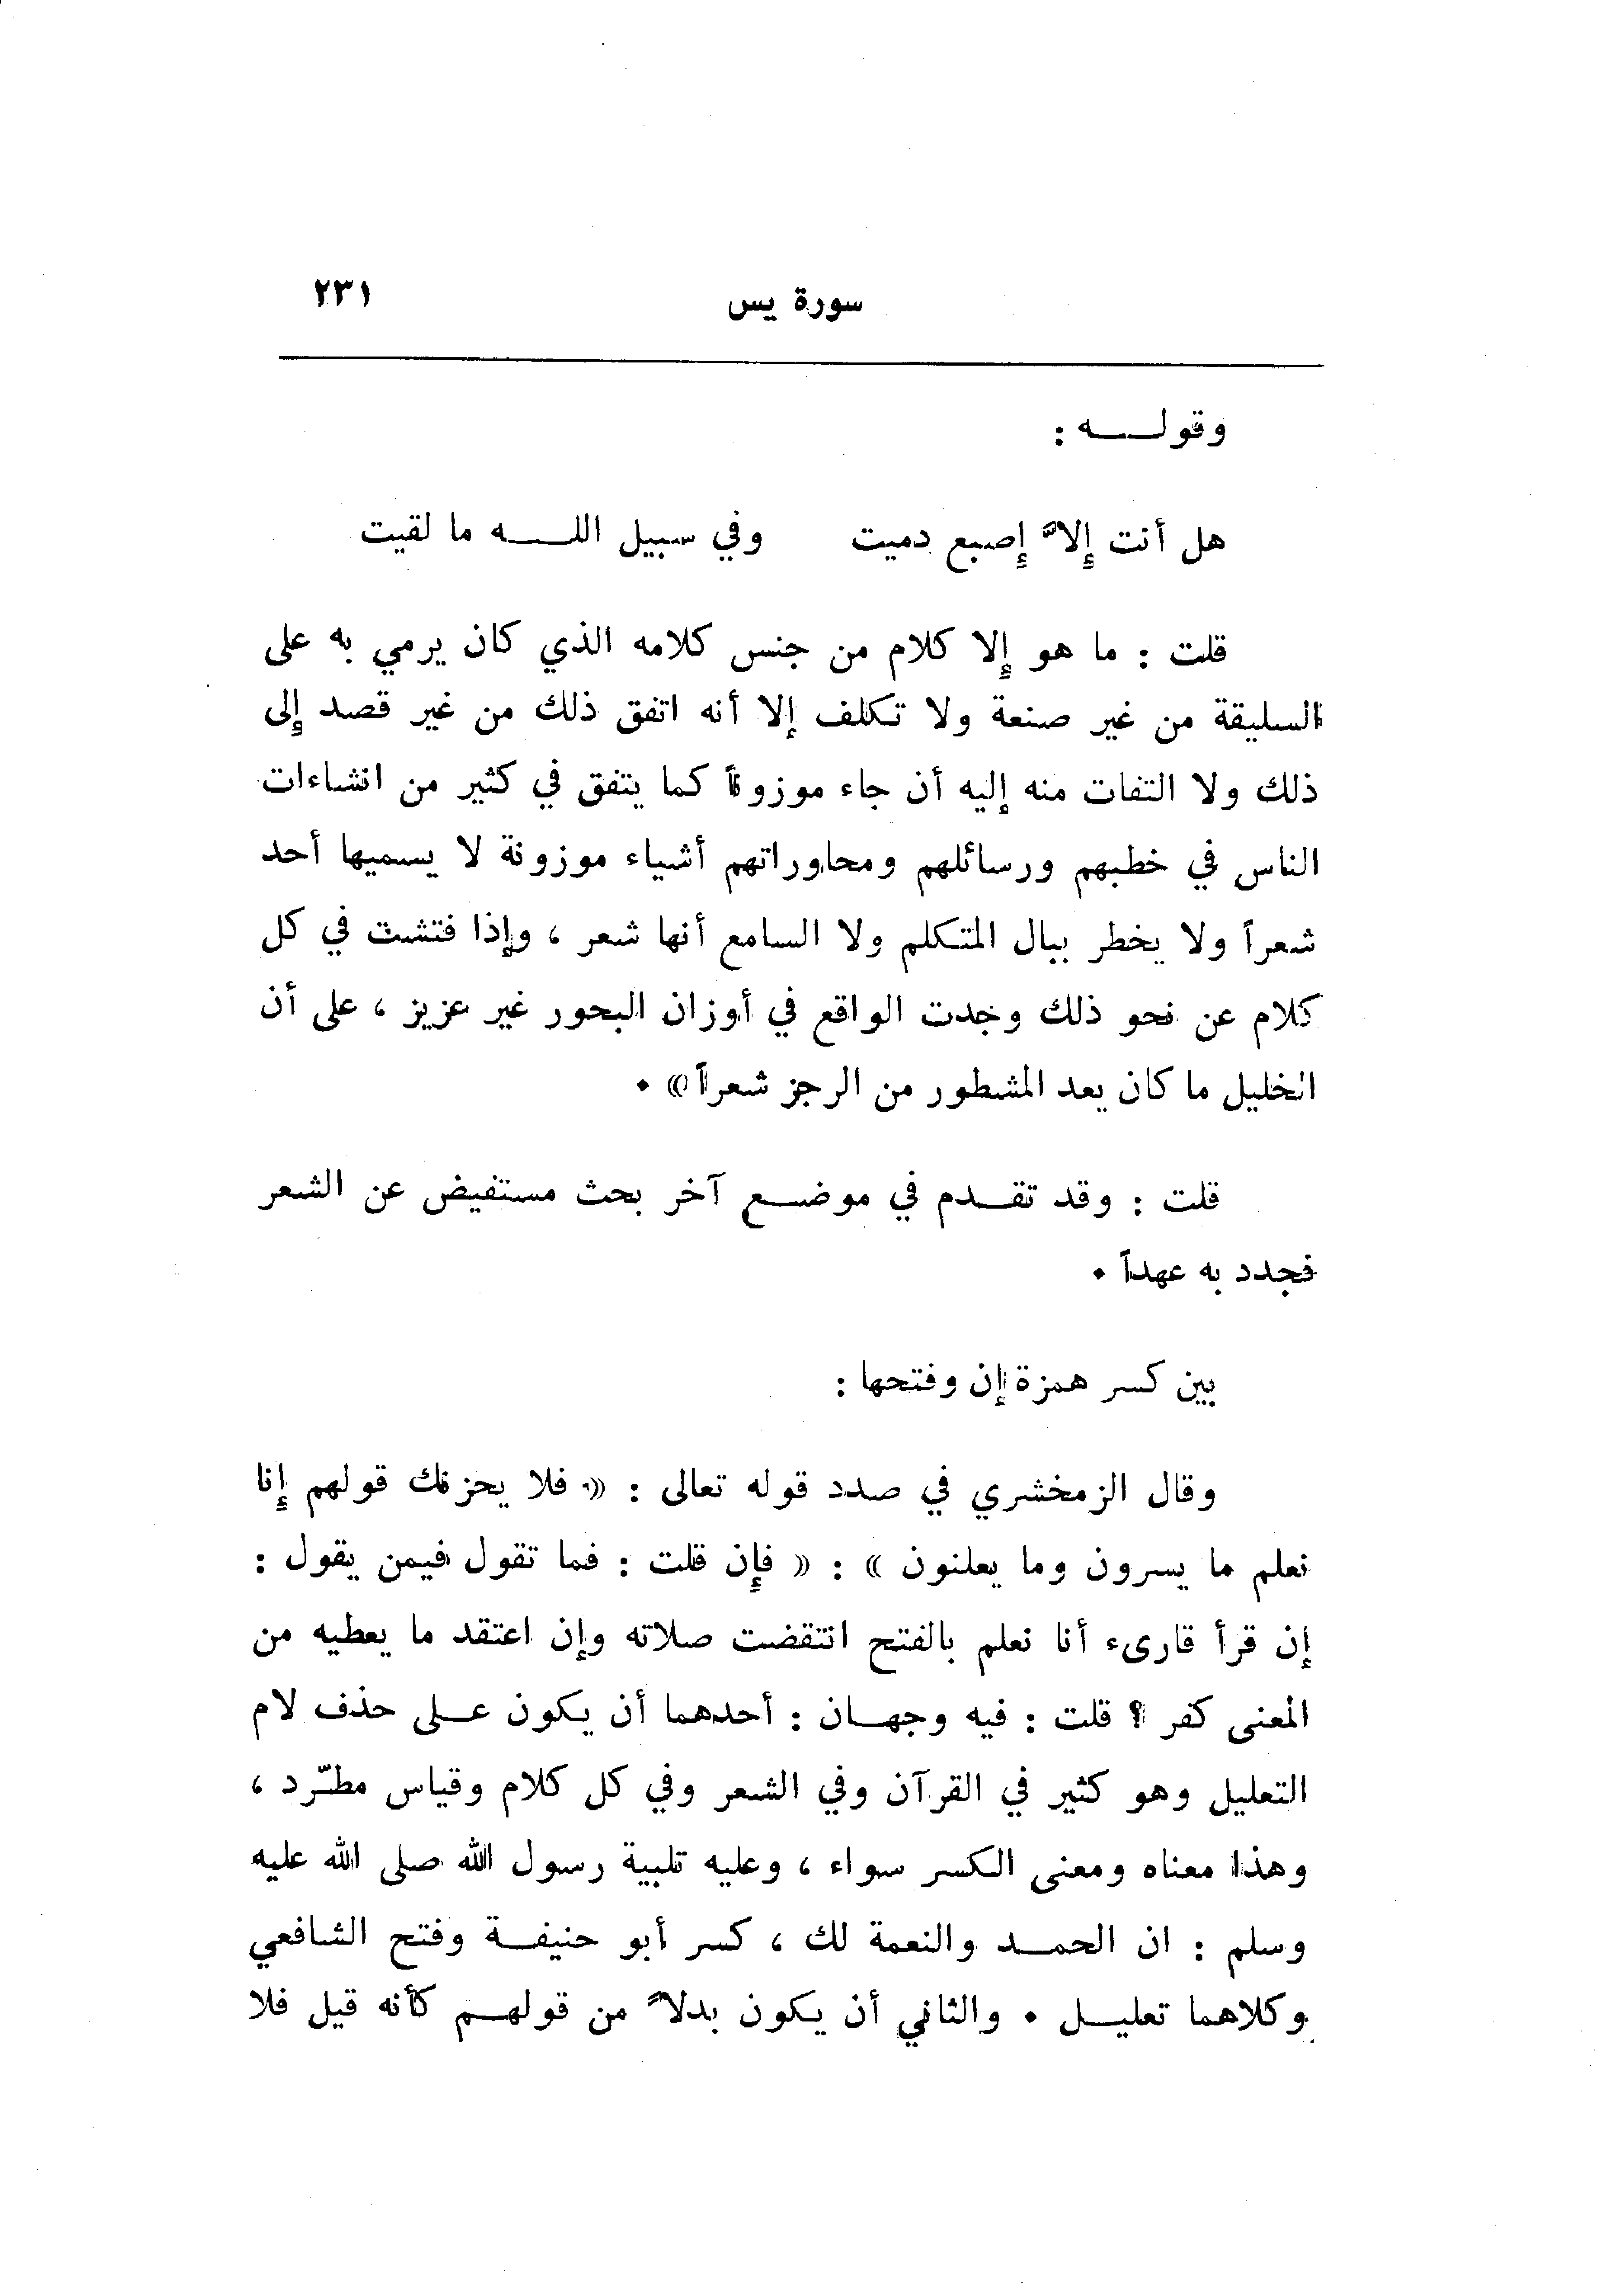 سورة يس ٢٣١
وقولـــه :
هل أنت إلاّ إصبع دميت وفي سبيل اللـــه ما لقيت
قلت : ما هو إلا كلام من جنس كلامه الذي كان يرمي به على
السليقة من غير صنعة ولا تكلف إلا أنه اتفق ذلك من غير قصد إلى
ذلك ولا التفات منه إليه أن جاء موزوناً كما يتفق في كثير من انشاءات
الناس في خطبهم ورسائلهم ومحاوراتهم أشياء موزونة لا يسميها أحد
شعراً ولا يخطر ببال المتكلم ولا السامع أنها شعر ، وإذا فتشت في كل
كلام عن نحو ذلك وجدت الواقع في أوزان البحور غير عزيز ، على أن
الخليل ما كان يعد المشطور من الرجز شعراً » ٠
قلت : وقد تقـدم في موضـع آخر بحث مستفيض عن الشعر
فجدد به عهداً ٠
بين كسر همزة إن وفتحها :
وقال الزمخشري في صدد قوله تعالى : « فلا يحزنك قولهم إنا
نعلم ما يسرون وما يعلنون » : « فإن قلت : فما تقول فيمن يقول :
إن قرأ قارىء أنا نعلم بالفتح انتقضت صلاته وإن اعتقد ما يعطيه من
المعنى كفر ؟ قلت : فيه وجهـان : أحدهما أن يكون عـلى حذف لام
التعليل وهو كثير في القرآن وفي الشعر وفي كل كلام وقياس مطّرد ،
وهذا معناه ومعنى الكسر سواء ، وعليه تلبية رسول الله صلى الله عليه
وسلم : ان الحمـد والنعمة لك ، كسر أبو حنيفـة وفتح الشافعي
وكلاهما تعليـل ٠ والثاني أن يكون بدلاً من قولهـم كأنه قيل فلا